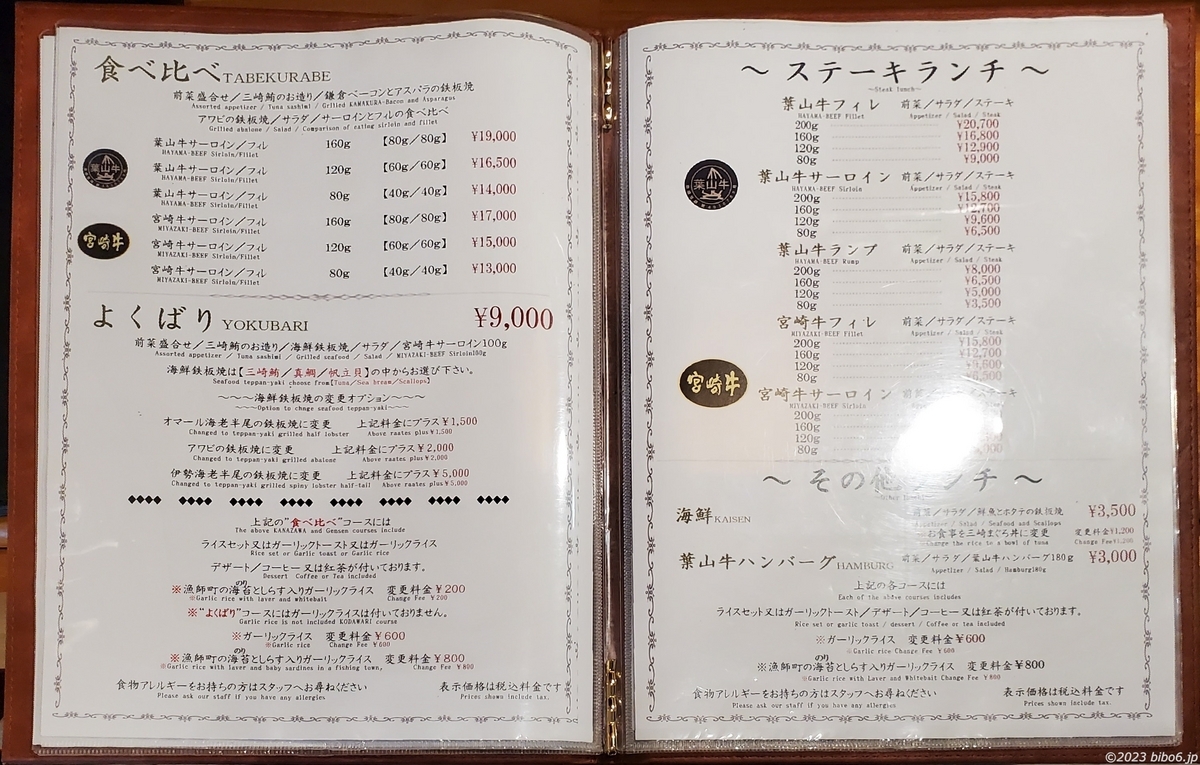 食べ比べ TABEKURABE
前菜盛合せ／三崎鮪のお造り／鎌倉ベーコンとアスパラの鉄板焼
Assorted appetizer / Tuna sashimi / Grilled KAMAKURA-Bacon and Asparagus
アワビの鉄板焼／サラダ／サーロインとフィレの食べ比べ
Grilled abalone / Salad / Comparison of eating sirloin and fillet
葉山牛サーロイン／フィレ 160g 【80g／80g】 ¥19,000
HAYAMA-BEEF Sirloin/Fillet
葉山牛サーロイン／フィレ 120g 【60g／60g】 ¥16,500
HAYAMA-BEEF Sirloin/Fillet
葉山牛サーロイン／フィレ 80g 【40g／40g】 ¥14,000
HAYAMA-BEEF Sirloin/Fillet
葉山牛
宮崎牛サーロイン／フィレ 160g 【80g／80g】 ¥17,000
MIYAZAKI-BEEF Sirloin/Fillet
宮崎牛サーロイン／フィレ 120g 【60g／60g】 ¥15,000
MIYAZAKI-BEEF Sirloin/Fillet
宮崎牛サーロイン／フィレ 80g 【40g／40g】 ¥13,000
MIYAZAKI-BEEF Sirloin/Fillet
宮崎牛
よくばり YOKUBARI ¥9,000
前菜盛合せ／三崎鮪のお造り／海鮮鉄板焼／サラダ／宮崎牛サーロイン100g
Assorted appetizer / Tuna sashimi / Grilled seafood / Salad / MIYAZAKI-BEEF Sirloin100g
海鮮鉄板焼は【三崎鮪／真鯛／帆立貝】の中からお選び下さい。
Seafood teppan-yaki choose from【Tuna／Sea bream／Scallops】
～～～～海鮮鉄板焼の変更オプション～～～～
～～Option to chnge seafood teppan-yaki～～
オマール海老半尾の鉄板焼に変更 上記料金にプラス¥1,500
Changed to teppan-yaki grilled half lobster Above raates plus¥1,500
アワビの鉄板焼に変更 上記料金にプラス¥2,000
Changed to teppan-yaki grilled abalone Above raates plus¥2,000
伊勢海老半尾の鉄板焼に変更 上記料金にプラス¥5,000
Changed to teppan-yaki grilled spiny lobster half-tail Above raates plus¥5,000
◆◆◆◆ ◆◆◆◆ ◆◆◆◆ ◆◆◆◆ ◆◆◆◆ ◆◆◆◆ ◆◆◆◆ ◆◆◆◆
上記の"食べ比べ"コースには
The above KANAZAWA and Gensen courses include
ライスセット又はガーリックトースト又はガーリックライス
Rice set or Garlic toast or Garlic rice
デザート／コーヒー又は紅茶が付いております。
Dessert Coffee or Tea included
※漁師町の海苔としらす入りガーリックライス 変更料金¥200
のり
※Garlic rice with laver and whitebait Change Fee ¥200
※"よくばり"コースにはガーリックライスは付いておりません。
Garlic rice is not included KODAWARI course
※ガーリックライス 変更料金¥600
※Garlic rice Change Fee ¥600
※漁師町の海苔としらす入りガーリックライス 変更料金¥800
のり
※Garlic rice with laver and baby sardines in a fishing town. Change Fee ¥800
食物アレルギーをお持ちの方はスタッフへお尋ねください 表示価格は税込料金です
Please ask our staff if you have any allergies Prices shown include tax.
～ ステーキランチ ～
～Steak lunch～
葉山牛フィレ 前菜／サラダ／ステーキ
HAYAMA-BEEF Fillet Appetizer / Salad / Steak
200g ¥20,700
160g ¥16,800
120g ¥12,900
80g ¥9,000
葉山牛サーロイン 前菜／サラダ／ステーキ
HAYAMA-BEEF Sirloin Appetizer / Salad / Steak
200g ¥15,800
160g ¥12,700
120g ¥9,600
80g ¥6,500
葉山牛
葉山牛ランプ 前菜／サラダ／ステーキ
HAYAMA-BEEF Rump Appetizer / Salad / Steak
200g ¥8,000
160g ¥6,500
120g ¥5,000
80g ¥3,500
宮崎牛フィレ 前菜／サラダ／ステーキ
MIYAZAKI-BEEF Fillet Appetizer / Salad / Steak
200g ¥15,800
160g ¥12,700
120g
80g
宮崎牛
宮崎牛サーロイン 前菜／サラダ／ステーキ
MIYAZAKI-BEEF Sirloin
200g
160g
120g
80g
～ その他ランチ ～
海鮮 KAISEN 前菜／サラダ／鮮魚とホタテの鉄板焼 ¥3,500
Appetizer / Salad / Seafood and Scallops
お食事を三崎まぐろ丼に変更 変更料金¥1,200
Change the rice to a bowl of tuna Change Fee¥1,200
葉山牛ハンバーグ HAMBURG 前菜／サラダ／葉山牛ハンバーグ180g ¥3,000
Appetizer / Salad / Hamburg180g
上記の各コースには
Each of the above courses includes
ライスセット又はガーリックトースト／デザート／コーヒー又は紅茶が付いております。
Rice set or garlic toast / dessert / Coffee or tea included
※ガーリックライス 変更料金¥600
※Garlic rice Change Fee ¥600
※漁師町の海苔としらす入りガーリックライス 変更料金¥800
のり
※Garlic rice with Laver and Whitebait Change Fee ¥800
食物アレルギーをお持ちの方はスタッフへお尋ねください 表示価格は税込料金です
Please ask our staff if you have any allergies Prices shown include tax.
©2023 bibo6.jp